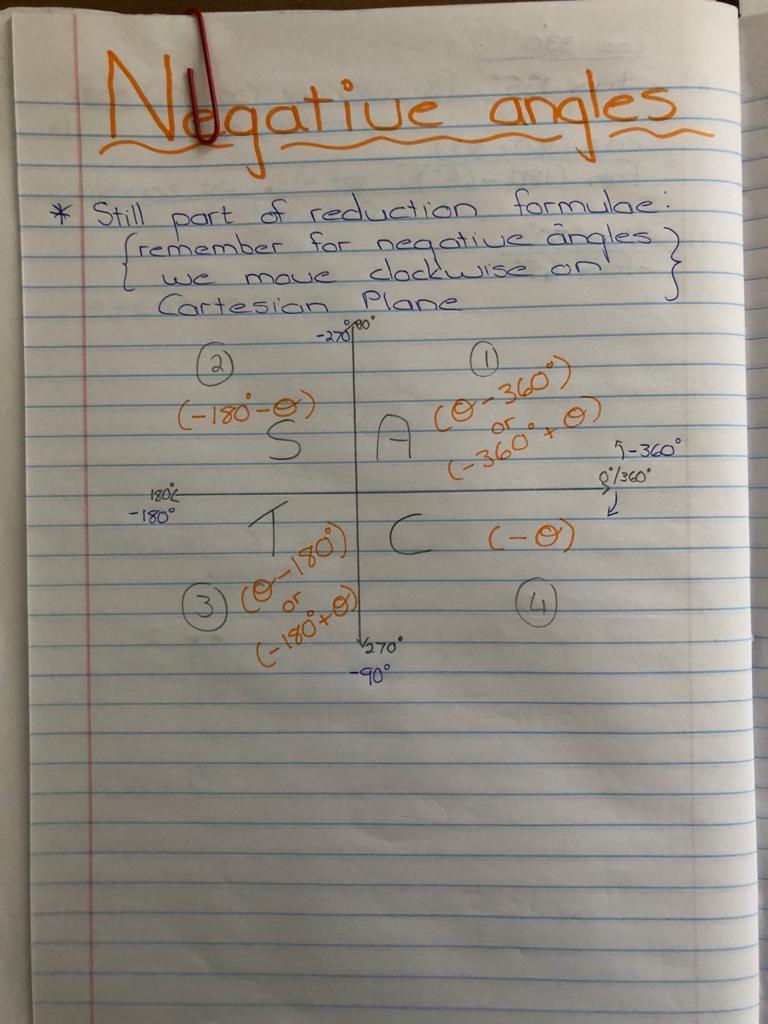 Negative angles
* Still part of reduction formulae:
{remember for negative angles
we move clockwise on}
Cartesian Plane
-270° 90°
② ①
(-180°-θ) (θ-360°)
or
(-360°+θ)
S A
-360°
0°/360°
180°
-180°
T C (-θ)
(θ-180°)
or
(-180°+θ)
③ ④
270°
-90°